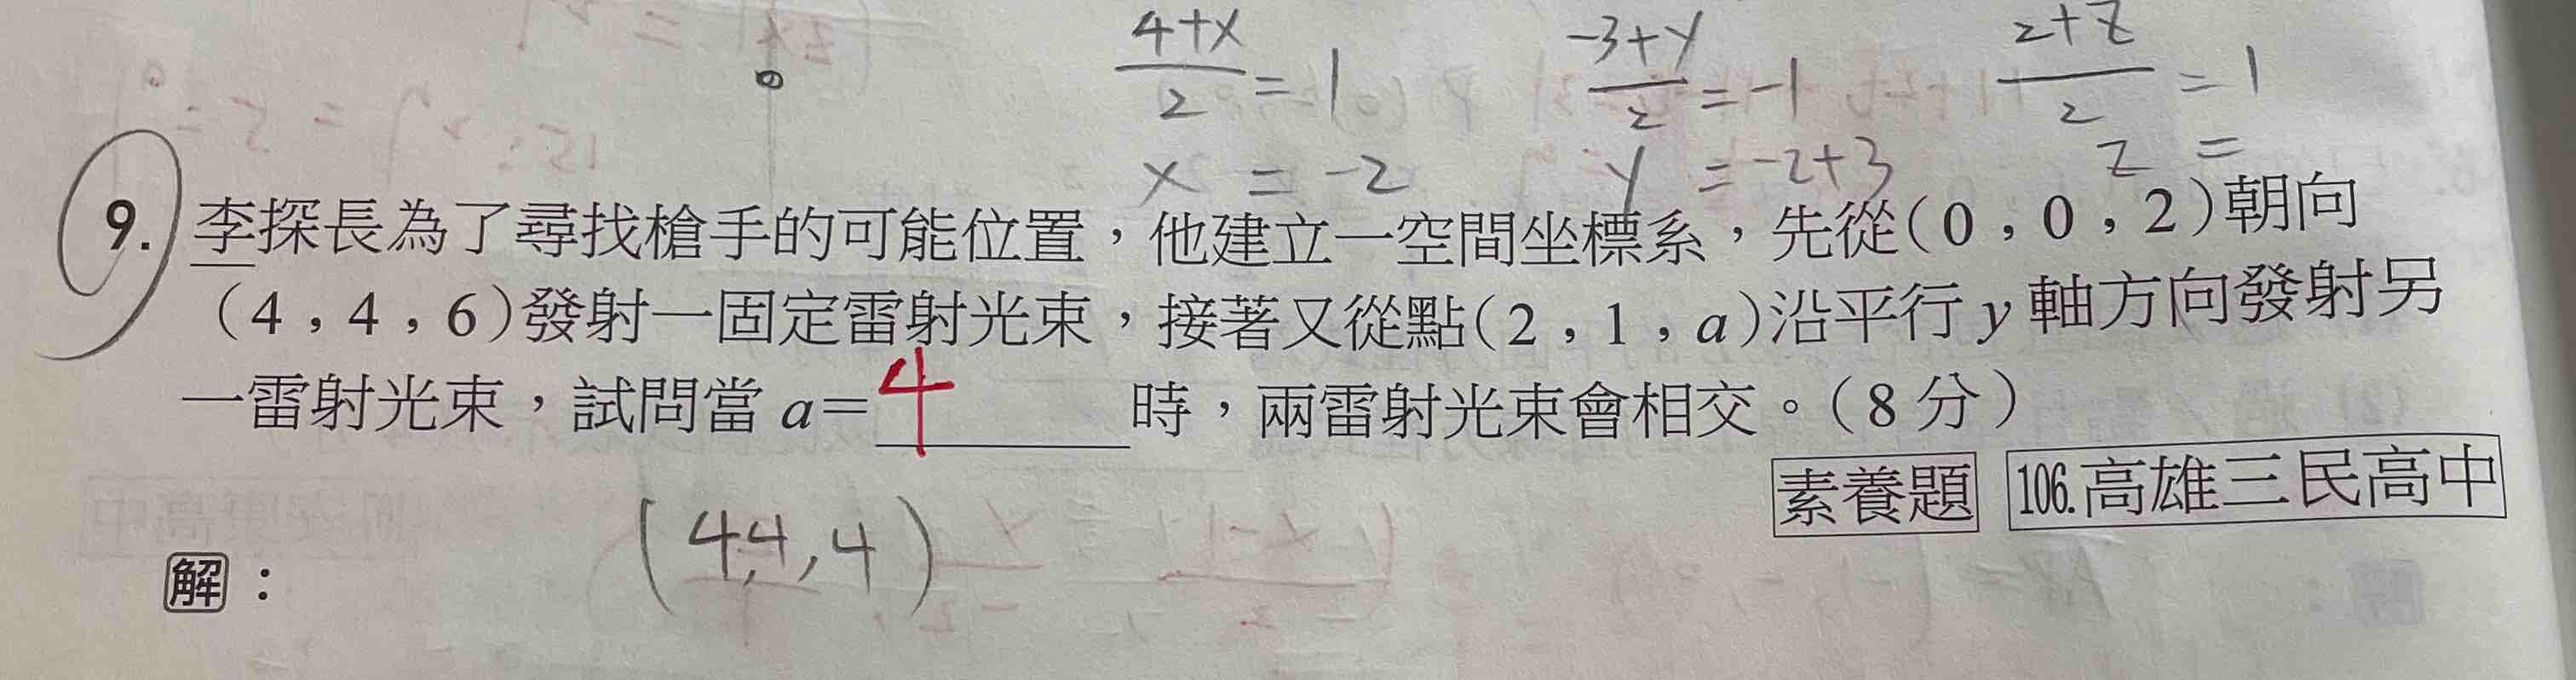 4+x/2=1 -3+y/2=-1 2+z/2=1
x=-2 y=-2+3 z=
9. 李探長為了尋找槍手的可能位置,他建立一空間坐標系,先從(0,0,2)朝向
(4,4,6)發射一固定雷射光束,接著又從點(2,1,a)沿平行 y 軸方向發射另
一雷射光束,試問當 a=4時,兩雷射光束會相交。(8 分)
素養題 106.高雄三民高中
(4,4,4)
解: